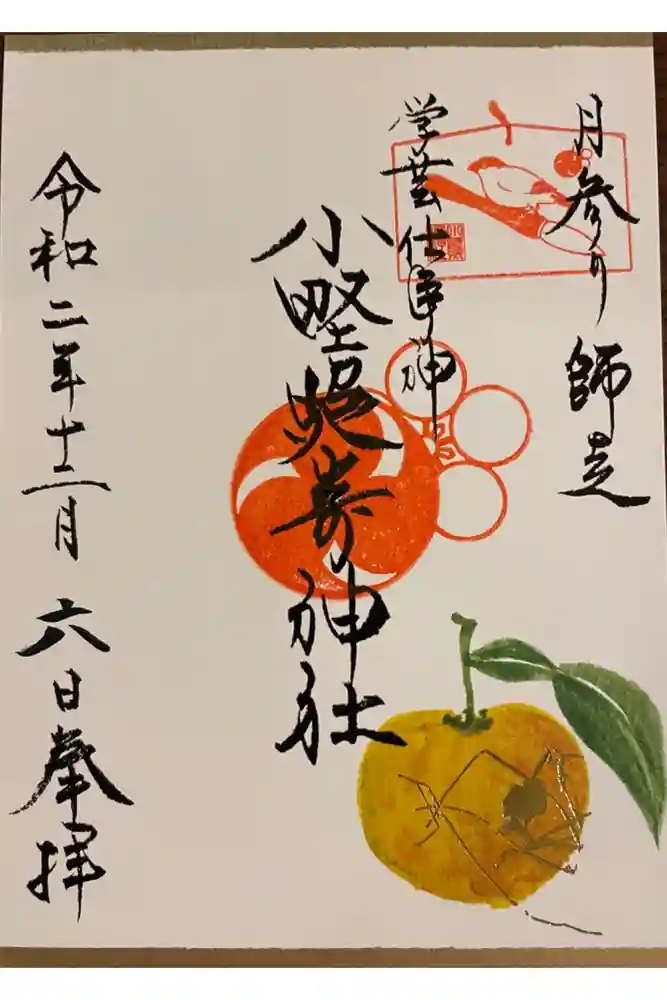 月参り 師走
学芸仕事神
小野照嵜神社
令和二年十二月 六日奉拝